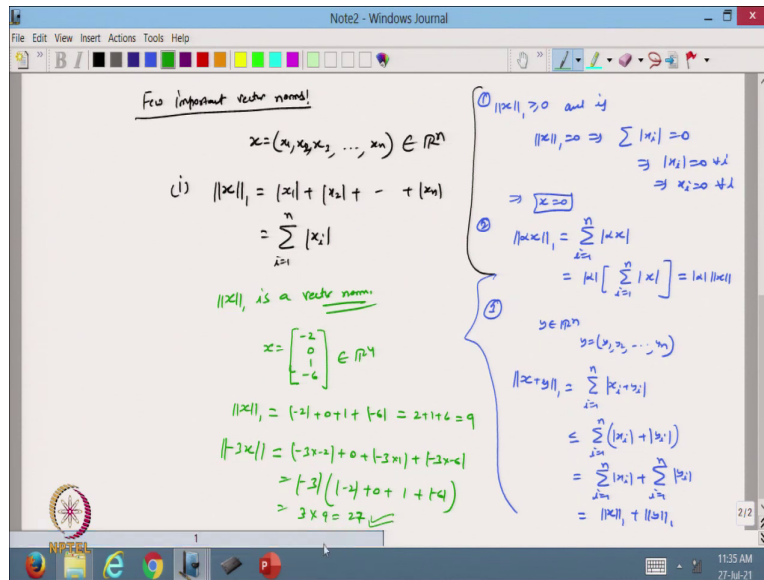 Note2 - Windows Journal
File Edit View Insert Actions Tools Help
Few important vector norms!
x=(x₁,x₂,x₃, ..., xₙ) ∈ ℝⁿ
(i) ||x||₁ = |x₁| + |x₂| + - + |xₙ|
= Σᵢ₌₁ⁿ |xᵢ|
||x||₁ is a vector norm.
x = [-2 0 1 -6] ∈ ℝ⁴
||x||₁ = |-2| + 0 + 1 + |-6| = 2+1+6 = 9
||-3x|| = |-3x-2| + 0 + |-3x1| + |-3x-6|
= |-3| (|-2| + 0 + 1 + |-6|)
= 3 x 9 = 27 ✓
① ||x||₁ ≥ 0 and is
||x||₁ = 0 ⇒ Σ |xᵢ| = 0
⇒ |xᵢ| = 0 ∀i
⇒ xᵢ = 0 ∀i
⇒ x = 0
② ||αx||₁ = Σᵢ₌₁ⁿ |αx|
= |α| [Σᵢ₌₁ⁿ |x|] = |α| ||x||
③ y ∈ ℝⁿ
y = (y₁, y₂, - - -, yₙ)
||x+y||₁ = Σᵢ₌₁ⁿ |xᵢ+yᵢ|
≤ Σᵢ₌₁ⁿ (|xᵢ| + |yᵢ|)
= Σᵢ₌₁ⁿ |xᵢ| + Σᵢ₌₁ⁿ |yᵢ|
= ||x||₁ + ||y||₁
2/2
1
NPTEL
11:35 AM
27-Jul-21